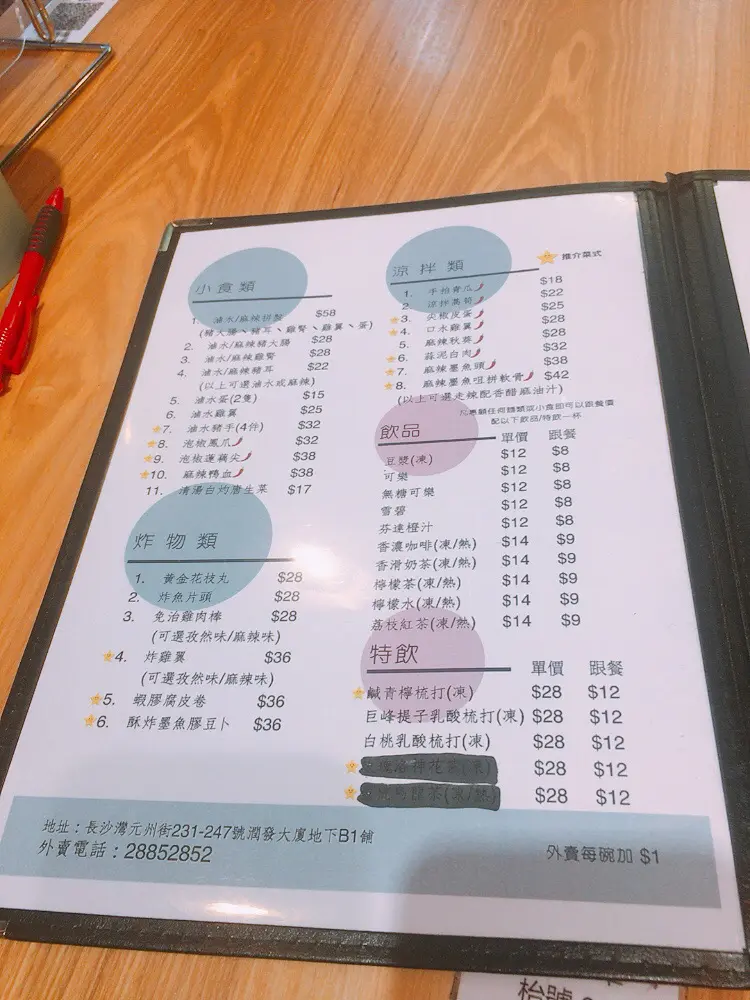 小食類
1. 滷水/麻辣拼盤 $58
(豬大腸、豬耳、雞腎、雞翼、蛋)
2. 滷水/麻辣豬大腸 $28
3. 滷水/麻辣雞腎 $28
4. 滷水/麻辣豬耳 $22
(以上可選滷水或麻辣)
5. 滷水蛋(2隻) $15
6. 滷水雞翼 $25
7. 滷水豬手(4件) $32
8. 泡椒鳳爪 $32
9. 泡椒蓮藕尖 $38
10. 麻辣鴨血 $38
11. 清湯白灼唐生菜 $17
炸物類
1. 黃金花枝丸 $28
2. 炸魚片頭 $28
3. 免治雞肉棒 $28
(可選孜然味/麻辣味)
4. 炸雞翼 $36
(可選孜然味/麻辣味)
5. 蝦膠腐皮卷 $36
6. 酥炸墨魚膠豆卜 $36
涼拌類
推介菜式
1. 手拍青瓜 $18
2. 涼拌萵筍 $22
3. 尖椒皮蛋 $25
4. 口水雞翼 $28
5. 麻辣秋葵 $28
6. 蒜泥白肉 $32
7. 麻辣墨魚頭 $38
8. 麻辣墨魚咀拼軟骨 $42
(以上可選走辣配香醋麻油汁)
凡惠顧任何麵類或小食即可以跟餐價
配以下飲品/特飲一杯
飲品 單價 跟餐
豆漿(凍) $12 $8
可樂 $12 $8
無糖可樂 $12 $8
雪碧 $12 $8
芬達橙汁 $12 $8
香濃咖啡(凍/熱) $14 $9
香滑奶茶(凍/熱) $14 $9
檸檬茶(凍/熱) $14 $9
檸檬水(凍/熱) $14 $9
荔枝紅茶(凍/熱) $14 $9
特飲 單價 跟餐
鹹青檸梳打(凍) $28 $12
巨峰提子乳酸梳打(凍) $28 $12
白桃乳酸梳打(凍) $28 $12
$28 $12
$28 $12
地址：長沙灣元州街231-247號潤發大廈地下B1舖
外賣電話：28852852
外賣每碗加 $1